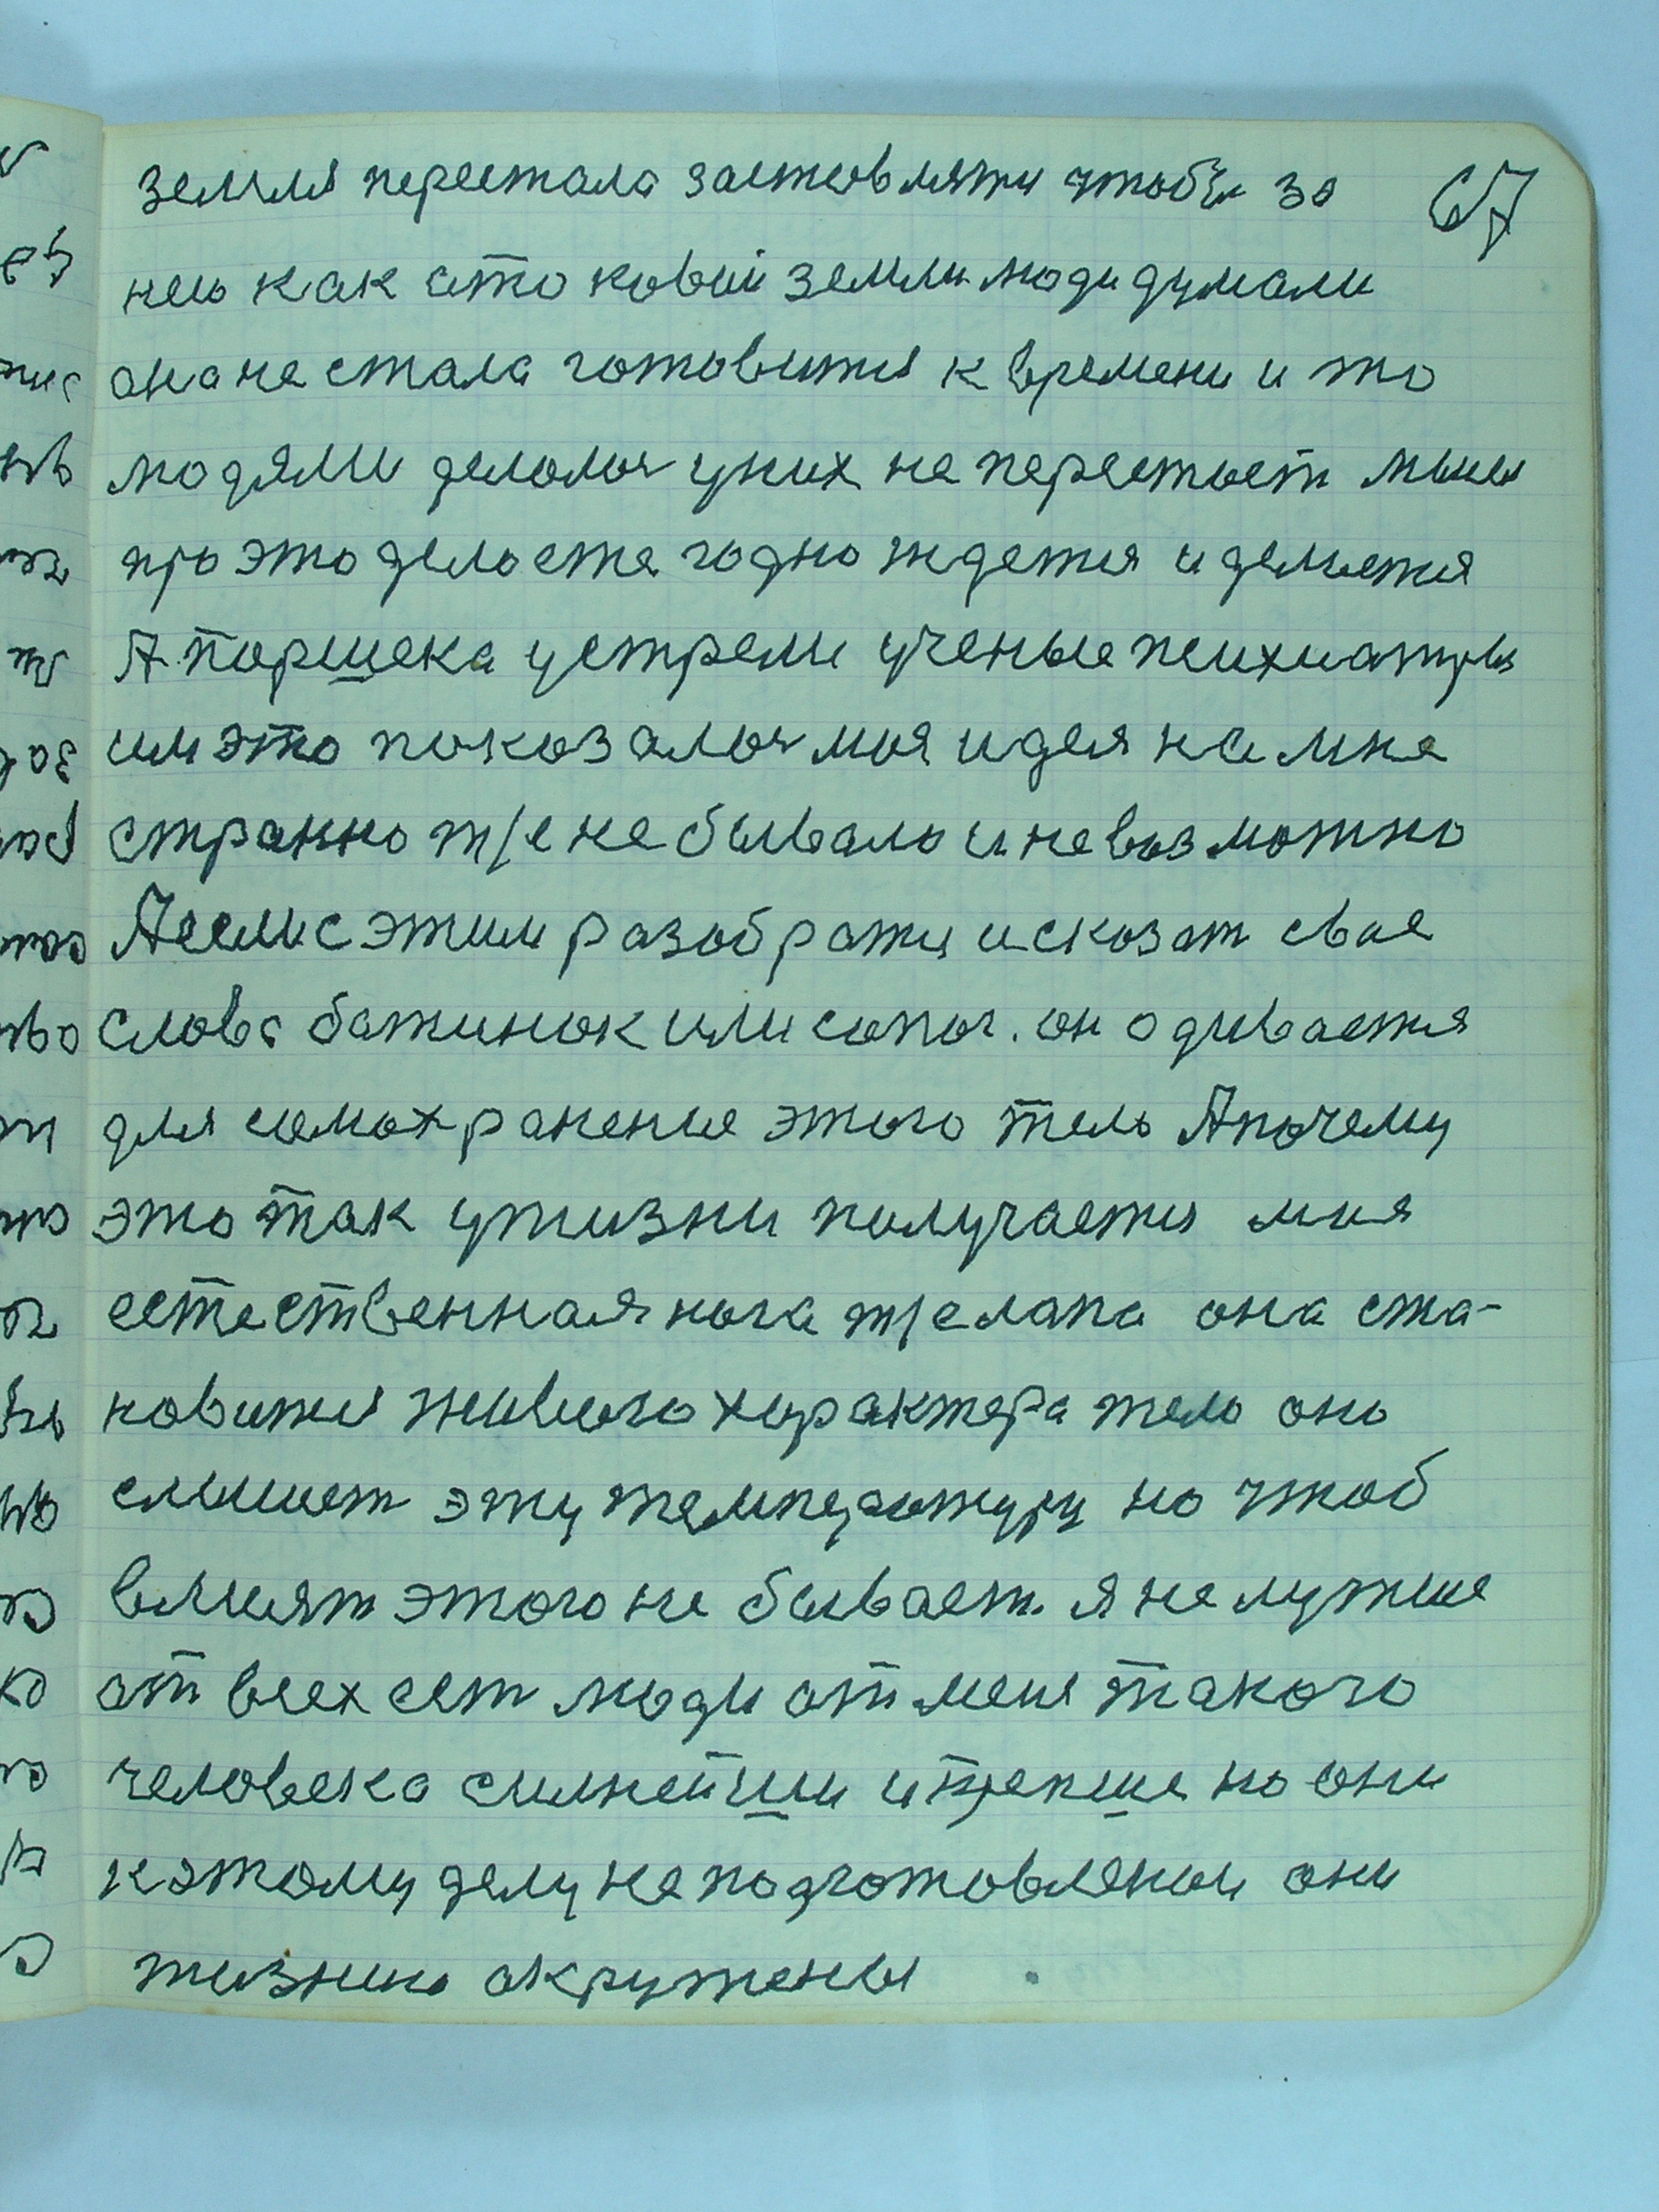 67
земля перестала заставляти чтобы за
нею как стоковый земли люди думали
она не стала готовится к времени и то
людями делолоя уних не перестает мысля
про это дело сте годно ждется и делается
А поршека устрели ученые психиатры
им это показалоя моя идея на мне
странно т/е не бывало и невозможно
Аесли с этим разобрати и сказат свае
слова батинок или сапог. он одивается
для самохранение этого тела Апочему
это так ужизни получается моя
естественная нога т/елапа она ста-
новится живого характера тело оно
слышает эту температуру но чтоб
влият этого не бывает. я не лутше
от всех ест люди от меня такого
человека силнейши и трепше но они
кэтому делу не подготовлены они
жизнию окружены